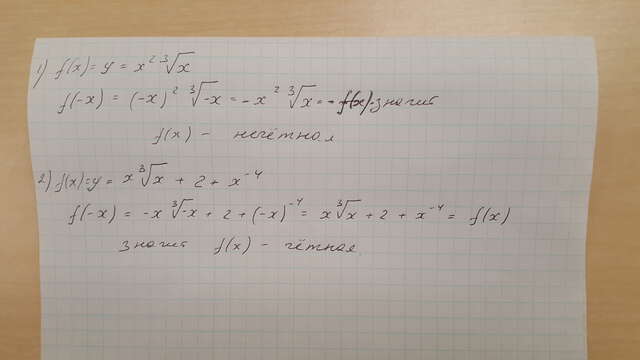 1) f(x) = y = x² ∛x
f(-x) = (-x)² ∛-x = -x² ∛x = -f(x). Значит
f(x) - нечётная
2) f(x) = y = x ∛x + 2 + x⁻⁴
f(-x) = -x ∛-x + 2 + (-x)⁻⁴ = x ∛x + 2 + x⁻⁴ = f(x)
Значит f(x) - чётная.